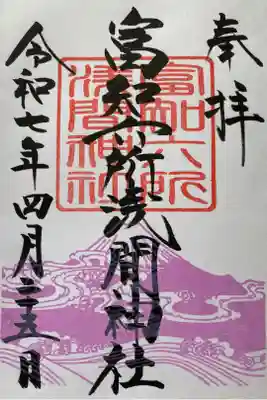 奉拝
富知六所浅間神社
富知六所
浅間神社
令和七年四月二十五日